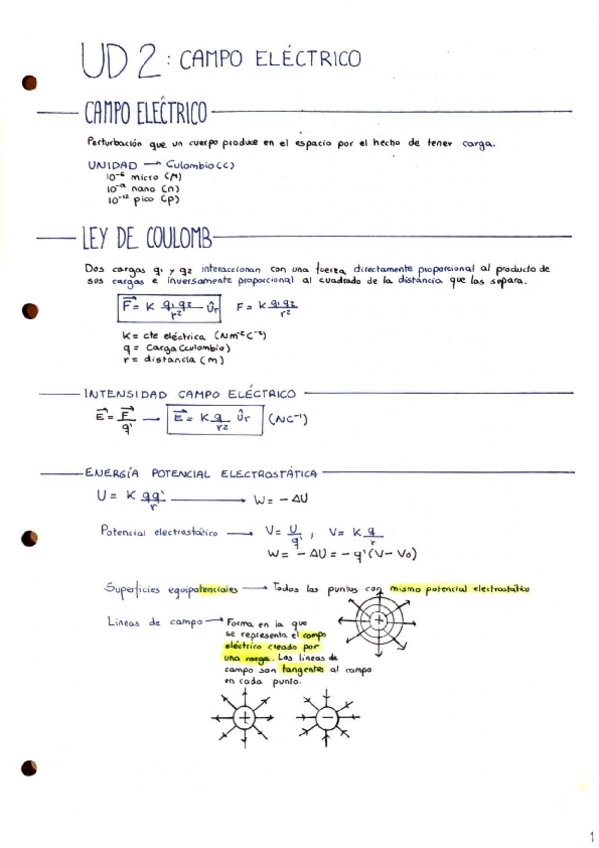 UD 2: CAMPO ELÉCTRICO
CAMPO ELÉCTRICO
Perturbación que un cuerpo produce en el espacio por el hecho de tener carga.
UNIDAD → Culombio (C)
10⁻⁶ micro (μ)
10⁻⁹ nano (n)
10⁻¹² pico (p)
LEY DE COULOMB
Dos cargas q₁ y q₂ interaccionan con una fuerza directamente proporcional al producto de
sus cargas e inversamente proporcional al cuadrado de la distancia que las separa.
F⃗ = K q₁q₂/r² ûr F = K q₁q₂/r²
K = cte eléctrica (Nm⁻²C⁻²)
q = carga (culombio)
r = distancia (m)
INTENSIDAD CAMPO ELÉCTRICO
E⃗ = F⃗/q' → E⃗ = K q/r² ûr (NC⁻¹)
ENERGÍA POTENCIAL ELECTROSTÁTICA
U = K qq'/r → W = -ΔU
Potencial electrostático → V = U/q' , V = K q/r
W = -ΔU = -q'(V-V₀)
Superficies equipotenciales → Todos los puntos con mismo potencial electrostático
Líneas de campo → Forma en la que
se representa el campo
eléctrico creado por
una carga. Las líneas de
campo son tangentes al campo
en cada punto.
+
+ −
1